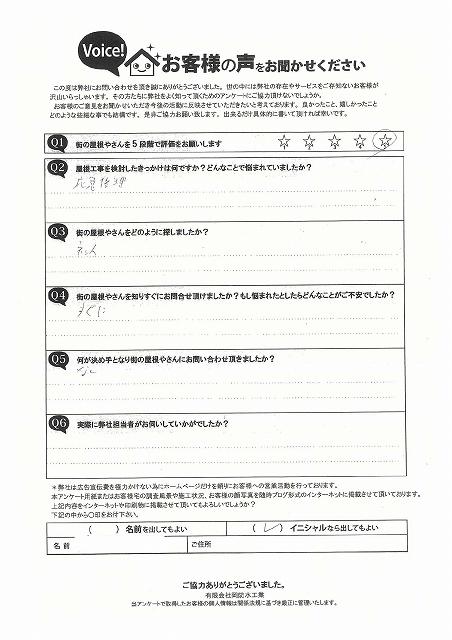 Voice!
お客様の声をお聞かせください
この度は弊社にお問い合わせを頂き誠にありがとうございました。世の中には弊社の存在やサービスをご存知ないお客様が
沢山いらっしゃいます。その方たちに弊社をよく知って頂くためのアンケートにご協力頂けないでしょうか。
お客様のご意見をお聞かせいただき今後の活動に反映させていただきたいと考えております。良かったこと、嬉しかったこと
どのような些細な事でも結構です。是非ご協力お願い致します。出来るだけ具体的に書いて頂ければ幸いです。
Q1 街の屋根やさんを5段階で評価をお願いします
Q2 屋根工事を検討したきっかけは何ですか？どんなことで悩まれていましたか？
応急修理
Q3 街の屋根やさんをどのように探しましたか？
ネット
Q4 街の屋根やさんを知りすぐにお問合せ頂けましたか？もし悩まれたとしたらどんなことがご不安でしたか？
すぐに
Q5 何が決め手となり街の屋根やさんにお問い合わせ頂きましたか？
Q6 実際に弊社担当者がお伺いしていかがでしたか？
＊弊社は広告宣伝費を極力かけない為にホームページだけを頼りにお客様への営業活動を行っております。
本アンケート用紙またはお客様宅の調査風景や施工状況、お客様の顔写真を随時ブログ形式のインターネットに掲載させて頂いております。
上記内容をインターネットや印刷物に掲載させて頂いてもよろしいでしょうか？
下記の中から〇印をお付下さい。
（　）名前を出してもよい （レ）イニシャルなら出してもよい
名前 ご住所
ご協力ありがとうございました。
有限会社岡防水工業
当アンケートで取得したお客様の個人情報は関係法規に基づき厳正に管理いたします。